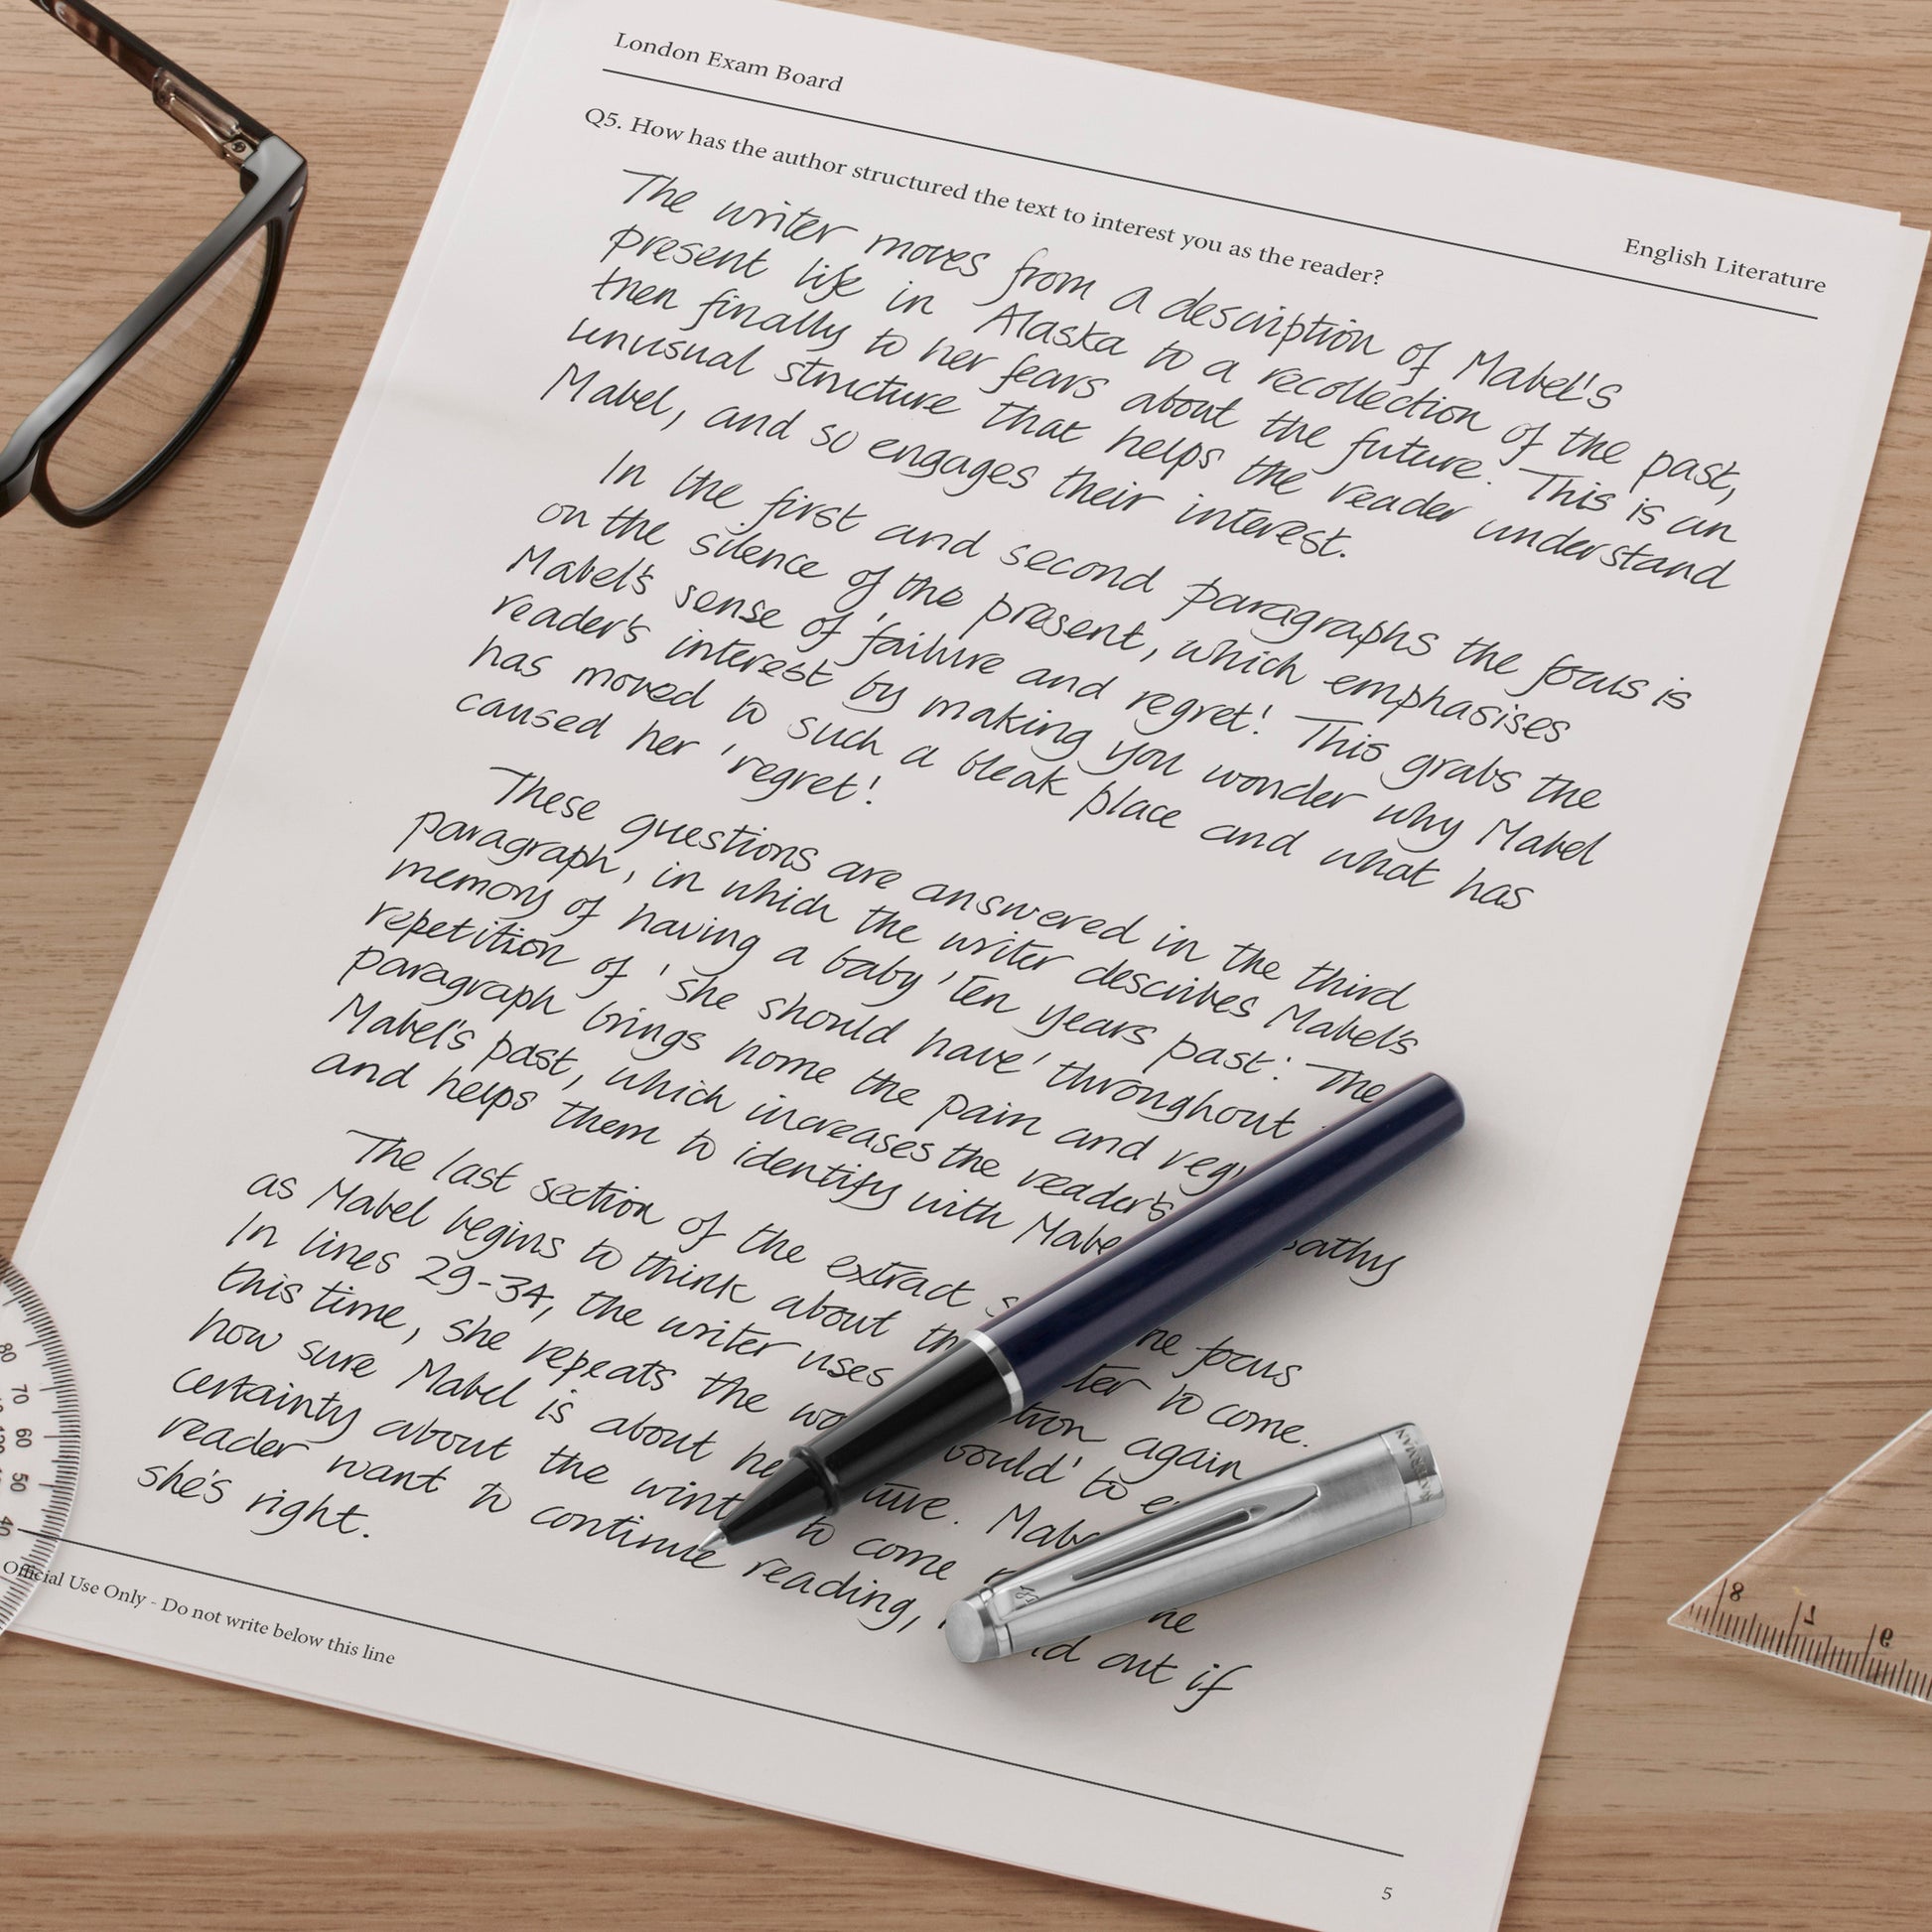 London Exam Board
English Literature
Q5. How has the author structured the text to interest you as the reader?
The writer moves from a description of Mabel's
present life in Alaska to a recollection of the past,
then finally to her fears about the future. This is an
unusual structure that helps the reader understand
Mabel, and so engages their interest.
In the first and second paragraphs the focus is
on the silence of the present, which emphasises
Mabel's sense of 'failure and regret'. This grabs the
reader's interest by making you wonder why Mabel
has moved to such a bleak place and what has
caused her 'regret'.
These questions are answered in the third
paragraph, in which the writer describes Mabel's
memory of having a baby 'ten years past'. The
repetition of 'she should have' throughout
paragraph brings home the pain and
Mabel's past, which increases the reader's
and helps them to identify with
The last section of the extract
as Mabel begins to think about to come.
In lines 29-34, the writer uses again
this time, she repeats the to
how sure Mabel is about
certainty about the to come
reader want to continue reading, out if
she's right.
Official Use Only - Do not write below this line
5
WATERMAN
80
70
60
50
40
8
7
6